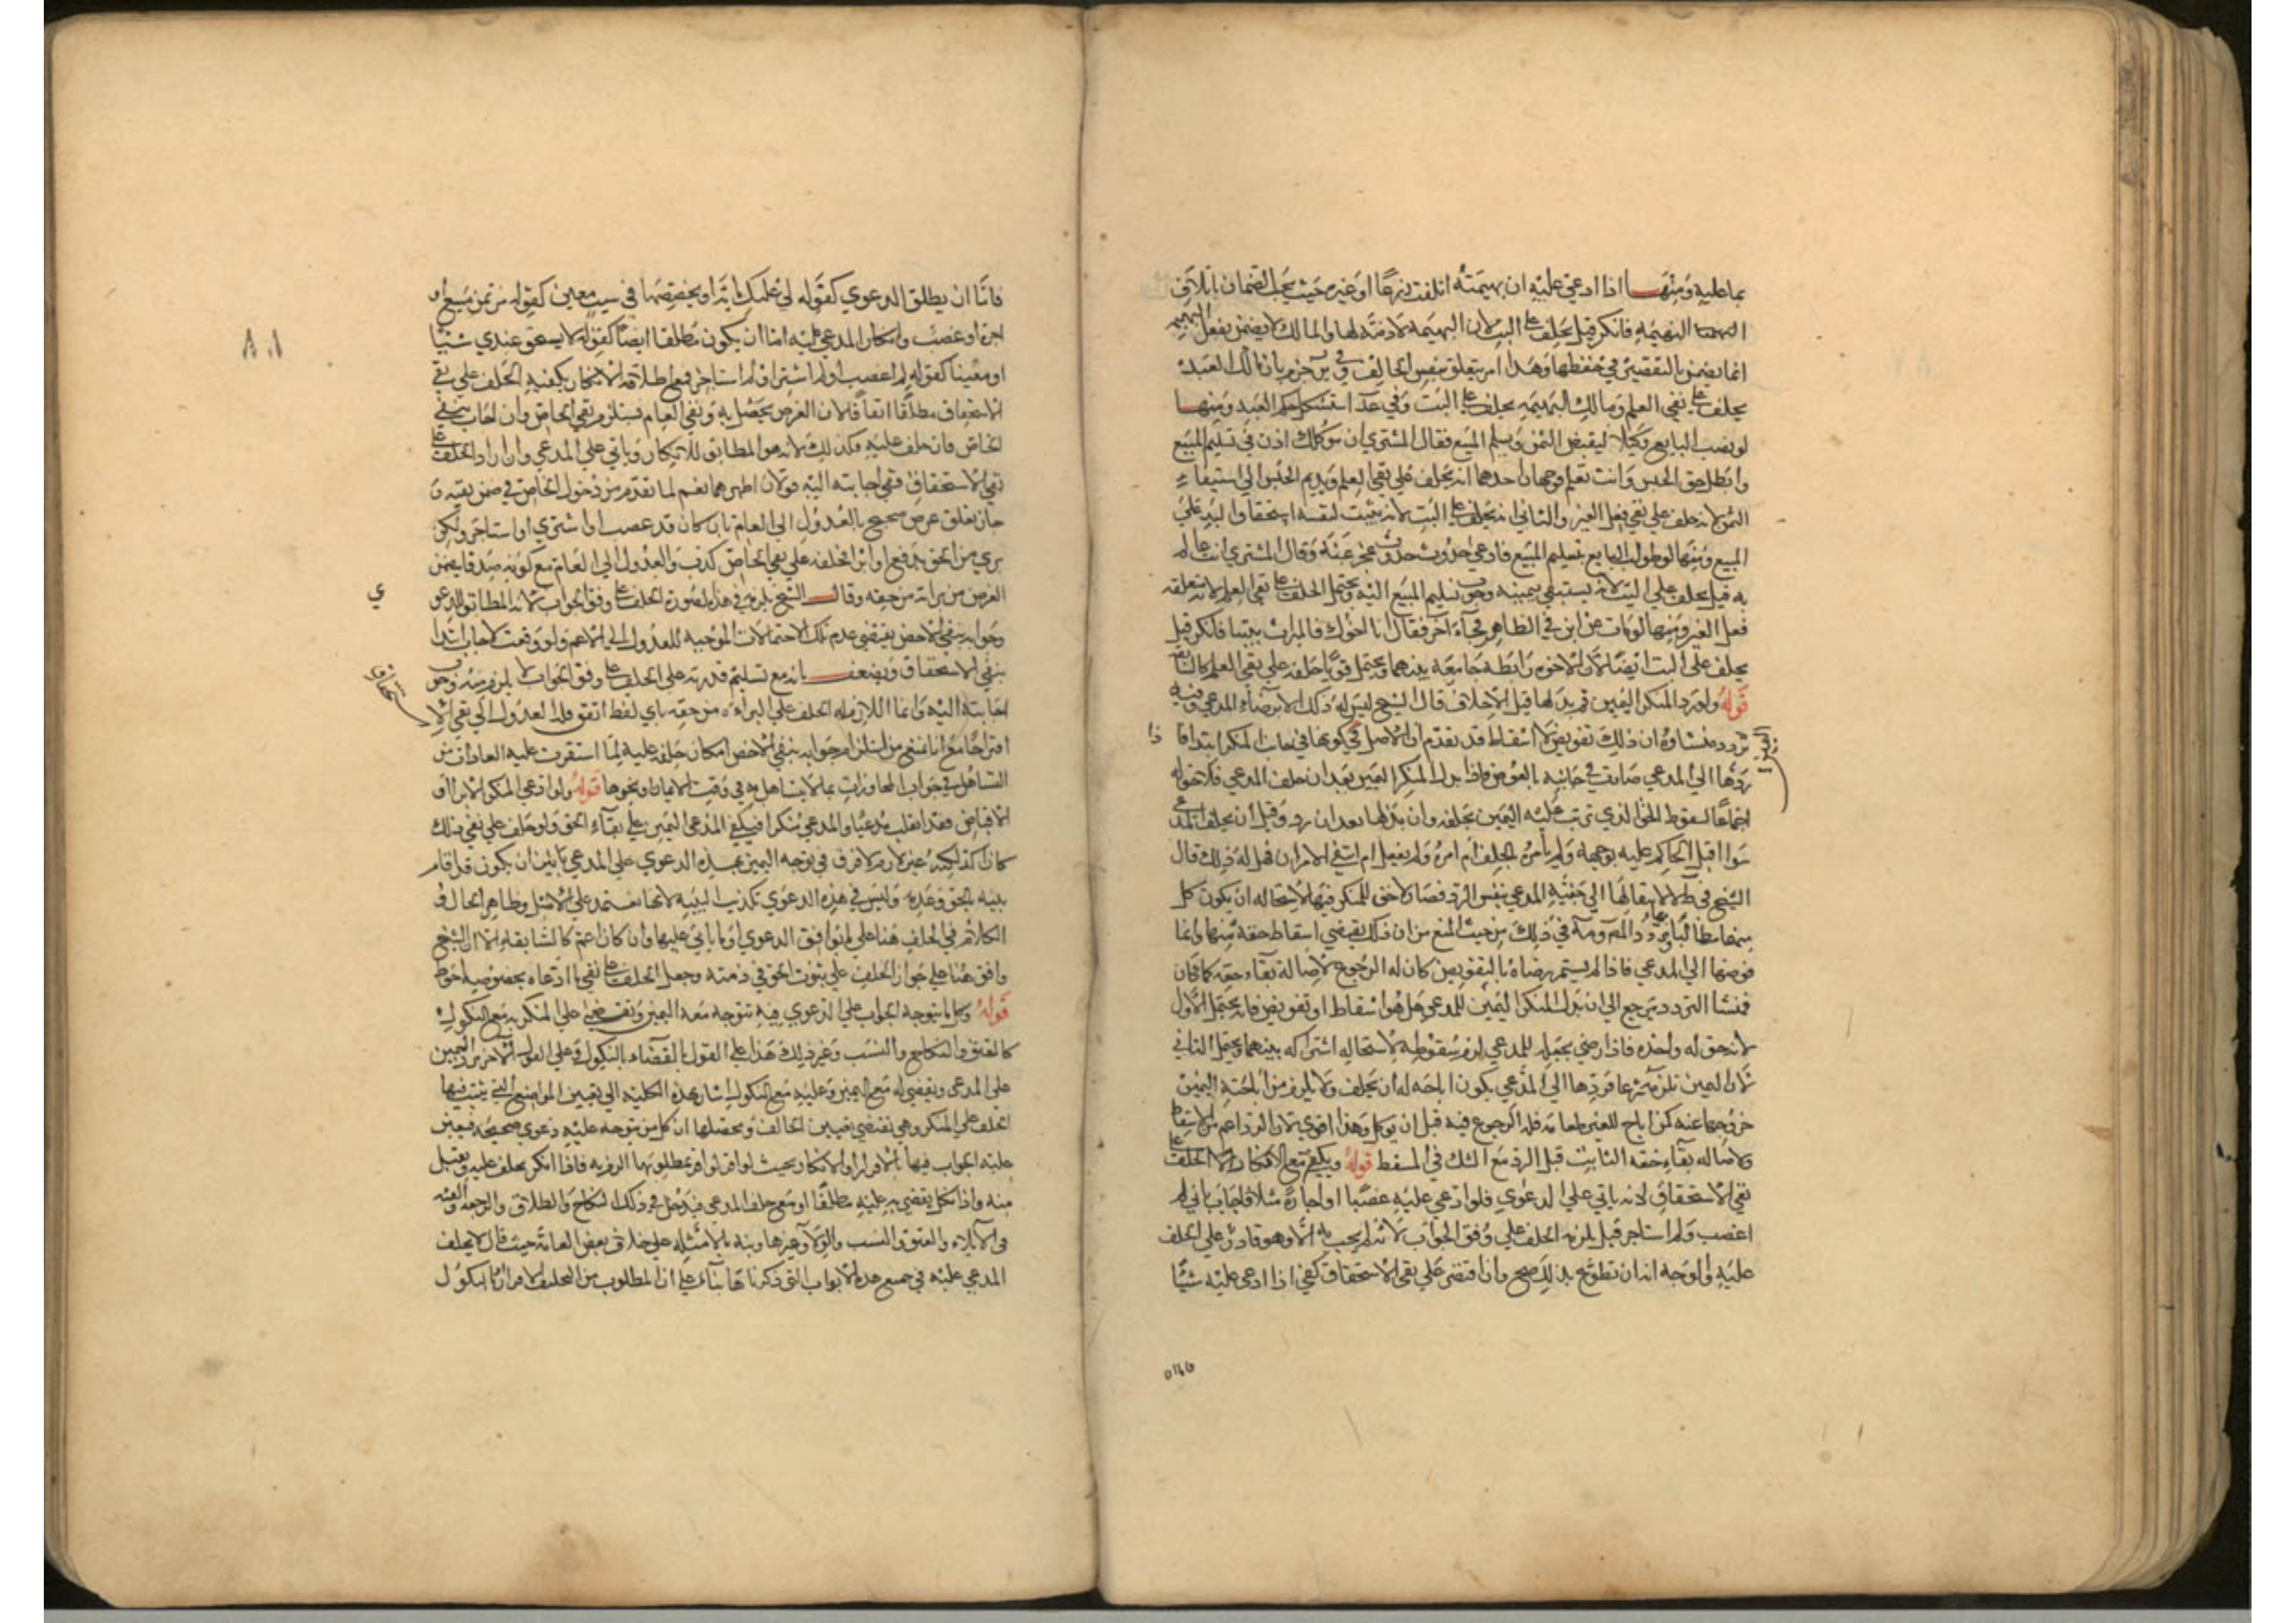 بما عليه ومنها اذا ادعي عليه ان بهيمته اتلفت زرعا او غيره حيث يجب الضمان باتلاف
البهيمه فانكر قيل يحلف علي البت لان البهيمة لا ذمة لها والمالك لا يضمن بفعل البهيمه
انما يضمن بالتقصير في حفظها وهذا امر يتعلق بنفس الحالف وفي ير جزم بان مالك العبد
يحلف علي نفي العلم ومالك البهيمه يحلف علي البت وفي عد استشكل حكم العبد ومنها
لو نصب البايع وكيلا ليقبض الثمن ويسلم المبيع فقال المشتري ان موكلك اذن في تسليم المبيع
وابطل حق الحبس وانت تعلم فوجهان احدهما انه يحلف علي نفي العلم ويديم الحبس الي استيفاء
الثمن لانه حلف علي نفي فعل الغير والثاني انه يحلف علي البت لانه يثبت لنفسه استحقاق اليد علي
المبيع ومنها لو طولب البايع بتسليم المبيع فادعي حدوث عجز عنه وقال المشتري انت عالم
به قيل يحلف علي البت لانه يستبقي بيمينه وجوب تسليم المبيع اليه ويحتمل الحلف علي نفي العلم لانه تعلقه
فعل الغير ومنها لو مات عن ابن في الظاهر فجاء اخر فقال انا اخوك فالميراث بيننا فانكر قيل
يحلف علي البت ايضا لان الاخوه رابطة جامعة بينهما ويحتمل قويا حلفه علي نفي العلم كالسابقه
قوله ولو رد المنكر اليمين ثم بذلها قبل الاحلاف قال الشيخ ليس له ذلك الا برضاء المدعي وفيه
تردد منشاوه ان ذلك تفويض لا اسقاط قد تقدم ان الاصل في اليمين كونها في جانب المنكر ابتدا فاذا
ردها الي المدعي صارت في جانبه بالعوض فاذا بذل المنكر اليمين بعد ان حلف المدعي فلا تحوله
اجماعا لسقوط الحق الذي ترتب عليه اليمين بحلفه وان بذلها بعد ان رد وقبل ان يحلف المدعي
سواء اقبل الحاكم عليه بوجهه ولم يامره بالحلف ام امره ولم يفعل ام انتفي الامران فهل له ذلك قال
الشيخ في ط لا لانتقالها الي جنبة المدعي بنفس الرد فصار لا حق للمنكر فيها لاستحاله ان يكون كل
منهما مطالبا وتردد المص ره في ذلك من حيث المنع من ان ذلك يقتضي اسقاط حقه منها وانما
فوضها الي المدعي فاذا لم يستمر رضاه بالتفويض كان له الرجوع لاصالة بقاء حقه كما كان
فمنشا التردد يرجع الي ان بذل المنكر اليمين للمدعي هل هو اسقاط او تفويض فانه يحتمل الاول
لانه حق له وحده فاذا رضي بجعله للمدعي لزم سقوطه لاستحاله اشتراكه بينهما ويحتمل الثاني
لان اليمين تلزمه شرعا فردها الي المدعي يكون اباحه له ان يحلف ولا يلزم من اباحة اليمين
خروجها عنه كمن اباح للغير طعامه فله الرجوع فيه قبل ان يوكل وهذا اقوي لان الرد اعم من الاسقاط
ولاصاله بقاء حقه الثابت قبل الرد مع الشك في المسقط قوله ويكفي مع الانكار الحلف علي
نفي الاستحقاق لانه ياتي علي الدعوي فلو ادعي عليه غصبا او اجارة مثلا فاجاب باني لم
اغصب ولم استاجر قيل يلزمه الحلف علي وفق الجواب لانه لم يجب به الا وهو قادر علي الحلف
عليه والوجه انه ان تطوع بذلك صح وان اقتصر علي نفي الاستحقاق كفي اذا ادعي عليه شيئا
فاما ان يطلق الدعوي كقوله لي عليك كذا او يخصصها في سبب معين كقوله من ثمن مبيع او
اجرة او غصب وانكار المدعي عليه اما ان يكون مطلقا ايضا كقوله لا يستحق عندي شيئا
او معينا كقوله لم اغصب او لم اشتر او لم استاجر فمع اطلاقه الانكار يكفيه الحلف علي نفي
الاستحقاق مطلقا اتفاقا لان الغرض يحصل به ونفي العام يستلزم نفي الخاص وان اجاب بنفي
الخاص فان حلف عليه فكذلك لانه هو المطابق للانكار وياتي علي المدعي وان اراد الحلف علي
نفي الاستحقاق ففي اجابته اليه قولان اظهرهما نعم لما تقدم من دخول الخاص في ضمن نفيه و
جاز تعلق غرض صحيح بالعدول الي العام بان كان قد غصب او اشتري او استاجر ولكن
بري من الحق بدفع او ابرا فحلفه علي نفي الخاص كذب والعدول الي العام مع كونه صدقا يضمن
الغرض من براته من حقه وقال الشيخ يلزمه في هذه الصورة الحلف علي وفق الجواب لانه المطابق للدعوي
وجوابه بنفي الاخص يقتضي عدم تلك الاحتمالات الموجبه للعدول الي الاعم ولو وقعت لاجاب ابتدا
بنفي الاستحقاق ويضعف بانه مع تسليم قدرته علي الحلف علي وفق الجواب لا يلزم منه وجوب
اجابته اليه وانما اللازم له الحلف علي البراءه من حقه باي لفظ اتفق فله العدول الي نفي الاستحقاق
اقتراحا مع انا نمنع من استلزام جوابه بنفي الاخص امكان حلفه عليه لما استقرت عليه العادات من
التساهل في جواب المحاورات بما لا يتساهل به في وقت الايمان ونحوها قوله ولو ادعي المنكر الابراء او
الاقباض فقد انقلب مدعيا والمدعي منكرا فيكفي المدعي اليمين علي بقاء الحق ولو حلف علي نفي ذلك
كان اكد لكنه غير لازم لا فرق في توجه اليمين بهذه الدعوي علي المدعي بين ان يكون قد اقام
بينه بالحق وعدمه وليس في هذه الدعوي تكذيب للبينه لانها تعتمد علي الاصل وظاهر الحال و
الكلام في الحلف هنا علي ما يوافق الدعوي او ما ياتي عليها وان كان اعم كالسابقه الا ان الشيخ
وافق هنا علي جواز الحلف علي ثبوت الحق في ذمته وجعل الحلف علي نفي ما ادعاه بخصوصه احوط
قوله وكل ما يتوجه الجواب علي الدعوي فيه يتوجه معه اليمين ويقضي علي المنكر به مع النكول
كالعتق والنكاح والنسب وغير ذلك هذا علي القول بالقضاء بالنكول وعلي القول الاخر يرد اليمين
علي المدعي ويقضي له مع اليمين وعليه مع النكول اشار بهذه الكليه الي تعيين المواضع التي يثبت فيها
الحلف علي المنكر وهي تقتضي تعيين الحالف ومحصلها ان كل من يتوجه عليه دعوي صحيحه فيتعين
عليه الجواب فيها بالاقرار او الانكار وبحيث لو اقر بمطلوبها الزم به فاذا انكر يحلف عليه ويقبل
منه واذا نكل يقضي به عليه مطلقا او مع حلف المدعي فيدخل في ذلك النكاح والطلاق والرجعه والفئه
في الايلاء والعتق والنسب والولاء وغيرها ونبه بالامثله علي خلاف بعض العامة حيث قال لا يحلف
المدعي عليه في جميع هذه الابواب التي ذكرناها بناء علي ان المطلوب من التحليف الاقرار او النكول